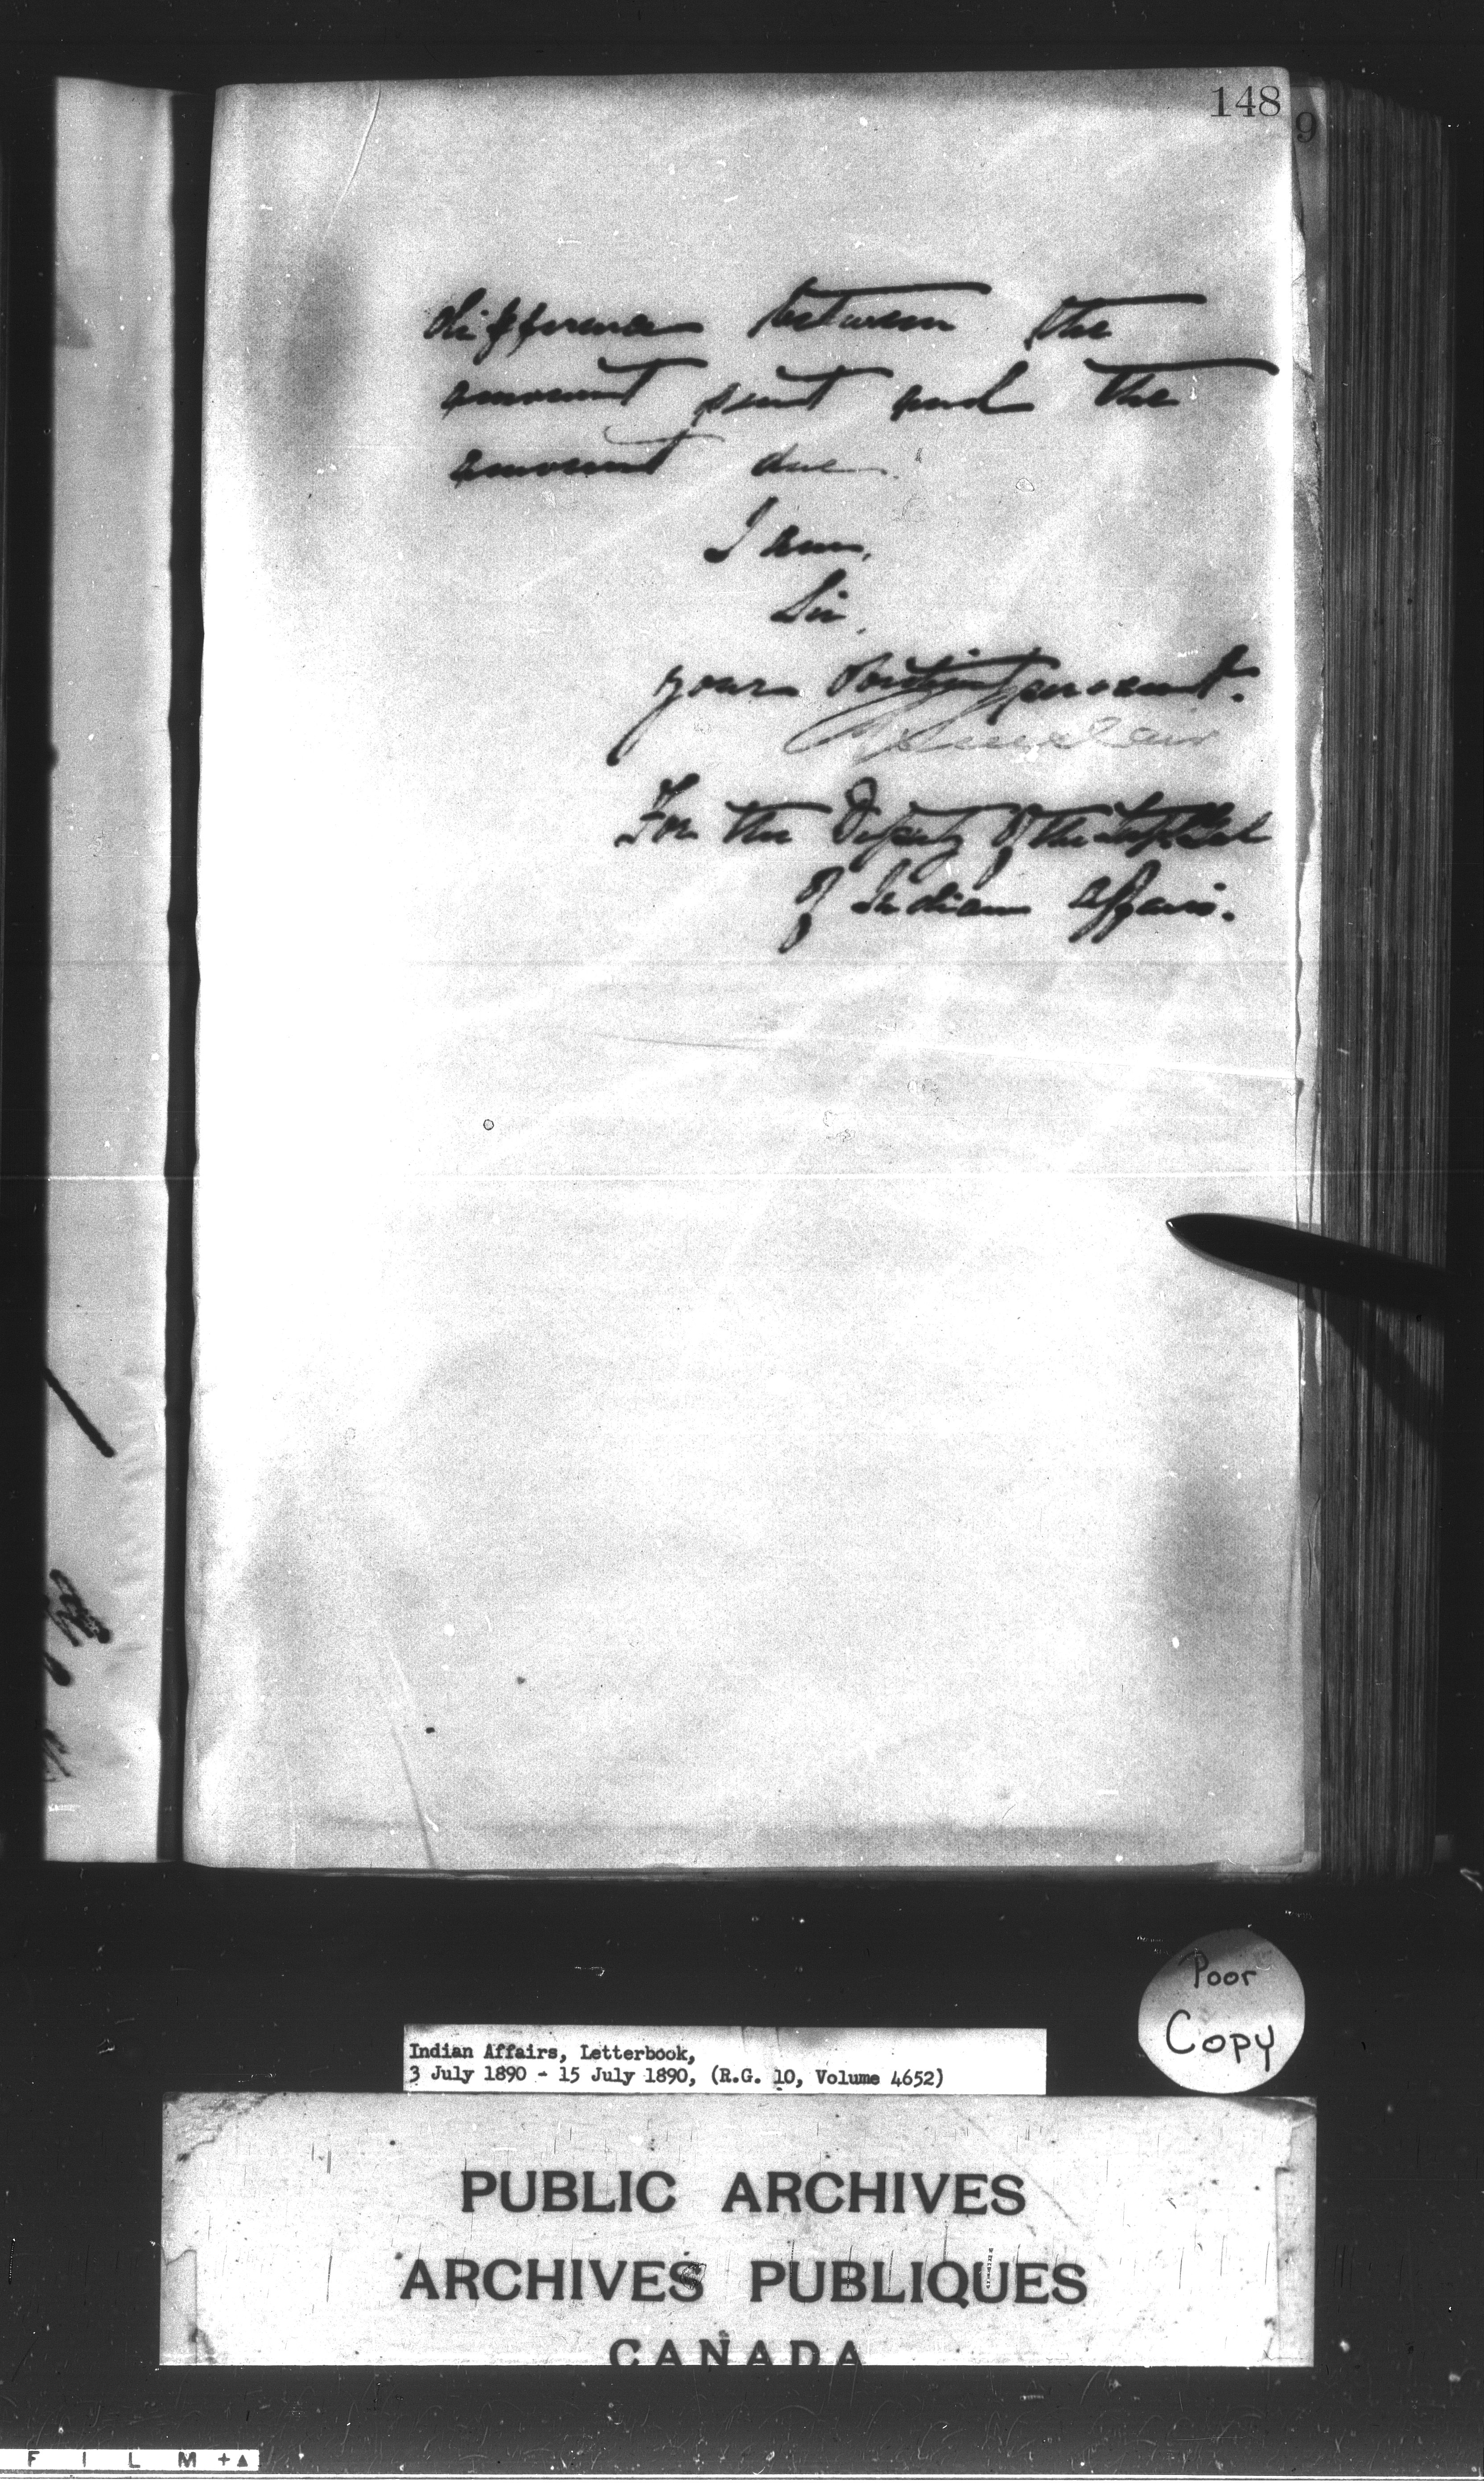 148
9
difference between the
amount sent and the
amount due.
I am,
Sir,
your obedient servant.
R Sinclair
For the Deputy of the Supt Genl
of Indian Affairs.
Poor
Copy
Indian Affairs, Letterbook,
3 July 1890 - 15 July 1890, (R.G. 10, Volume 4652)
PUBLIC ARCHIVES
ARCHIVES PUBLIQUES
CANADA
FILM